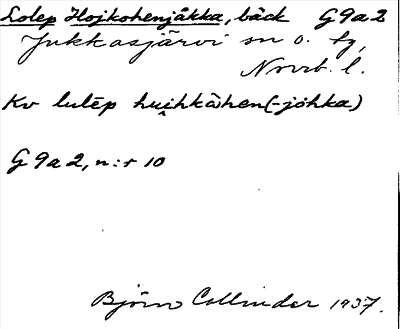 Lolep Hojkohenjåkka, bäck G9a2
Jukkasjärvi sn o. tg,
Norrb. l.
Kv lulēp hui̭hkȧihen(-jöhka)
G9a2, n:r 10
Björn Collinder 1937.